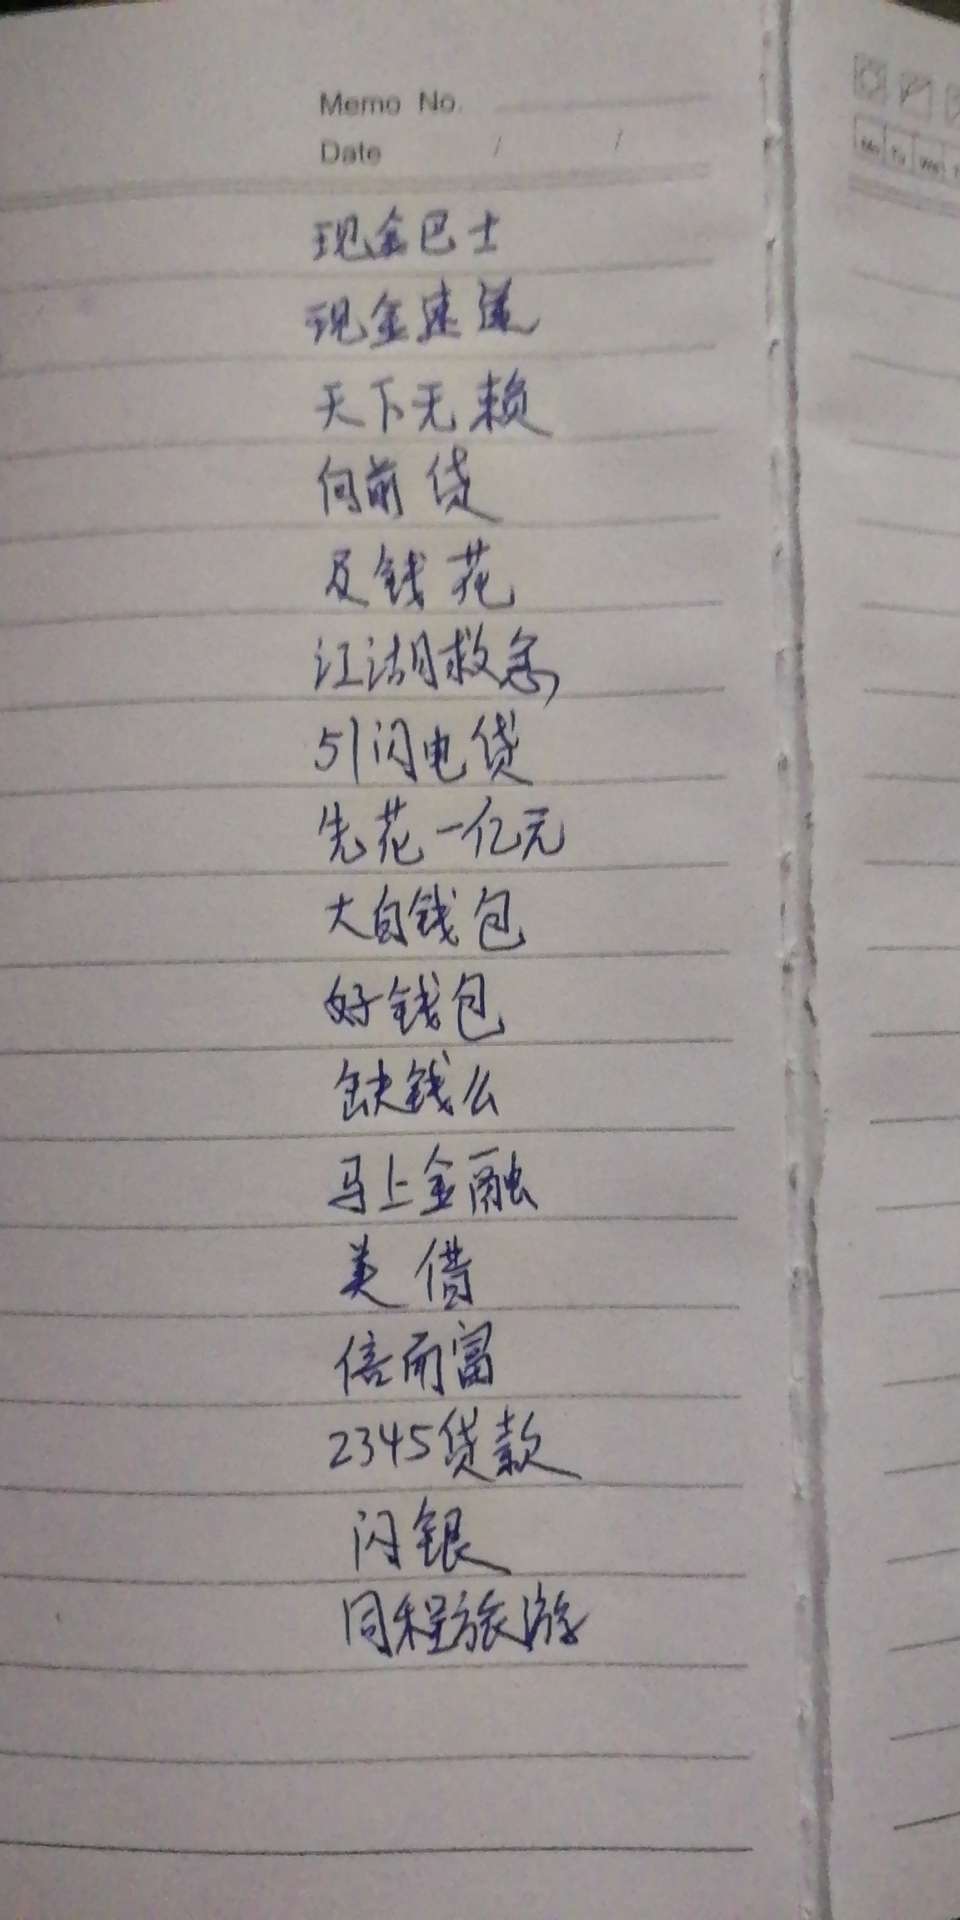 Memo No.
Date / /
现金巴士
现金速递
天下无赖
向前贷
及钱花
江湖救急
51闪电贷
先花一亿元
大白钱包
好钱包
缺钱么
马上金融
美借
信而富
2345贷款
闪银
同程旅游
Mo Tu We